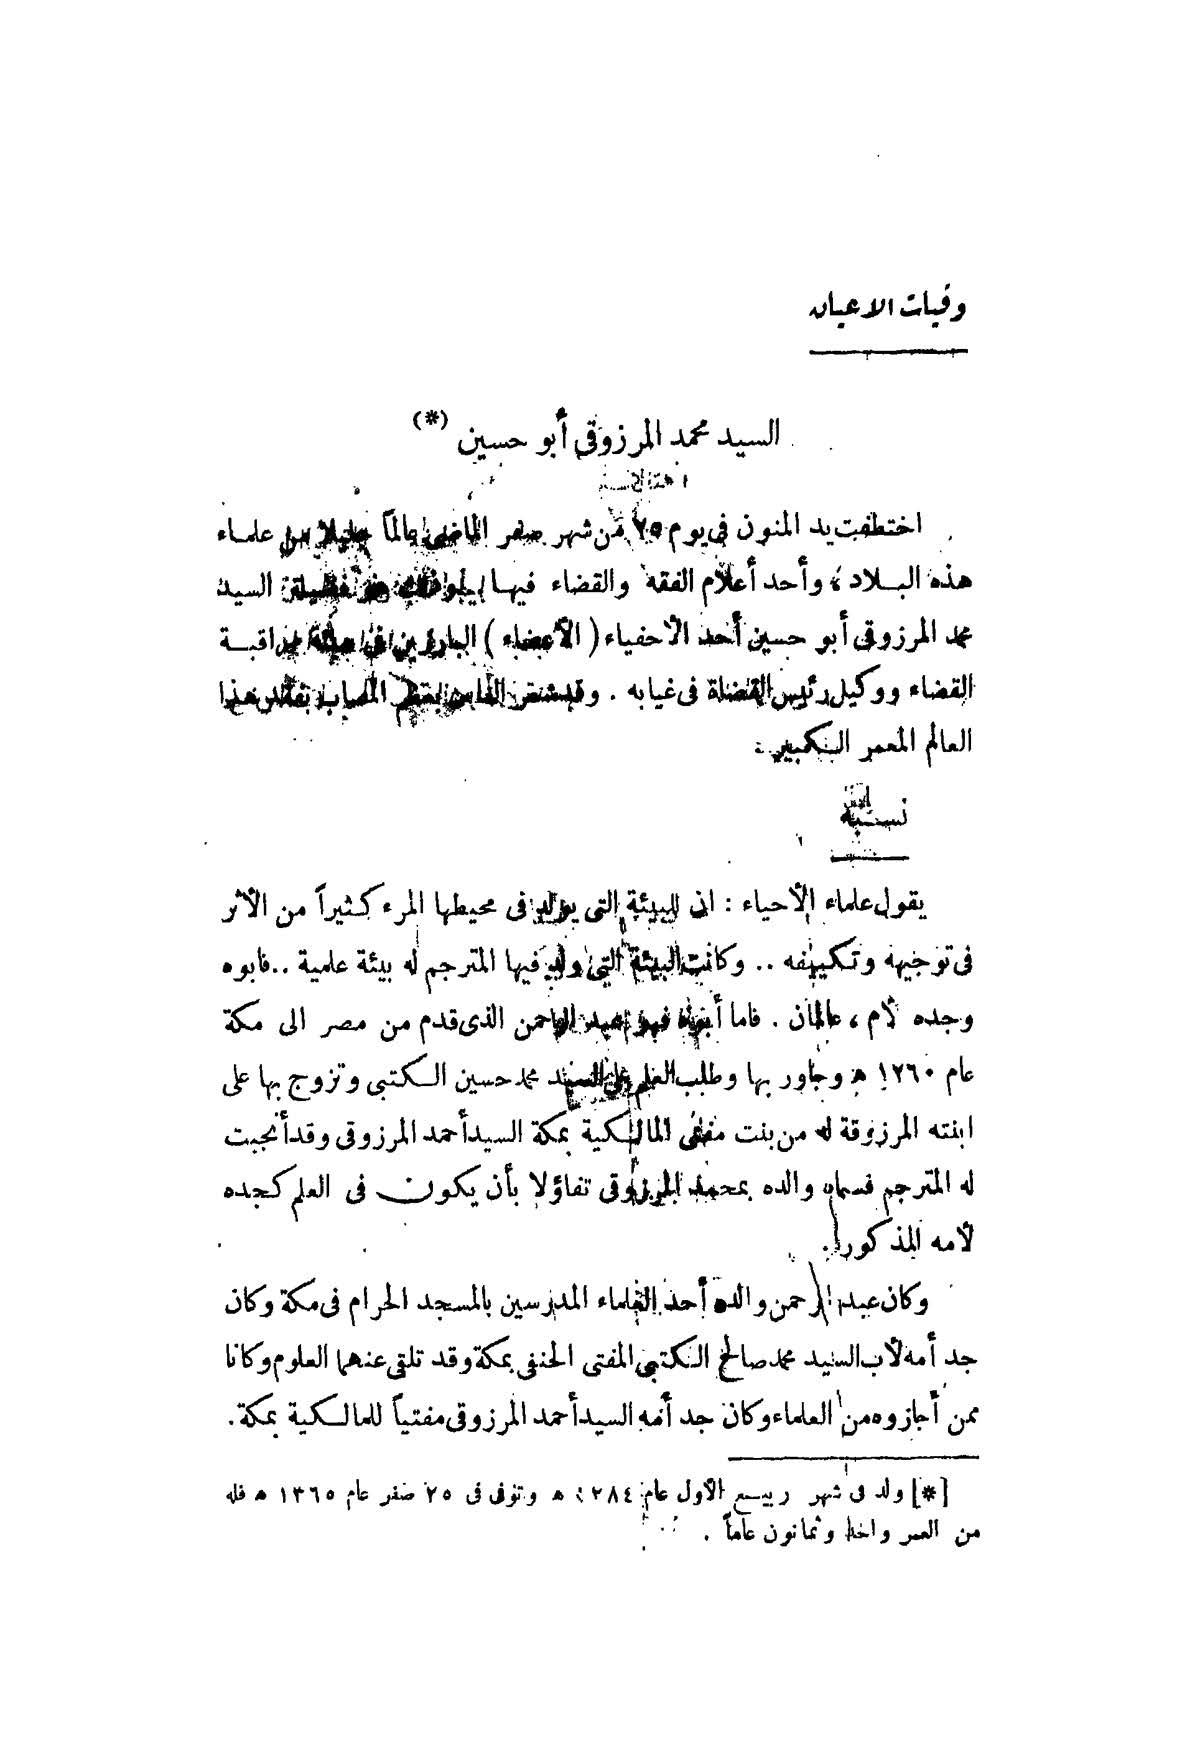 وفيات الاعيان
السيد محمد المرزوقى أبو حسين (*)
اختطفت يد المنون فى يوم ٢٥ من شهر صفر الماضى عالماً جليلا من علماء
هذه البلاد، وأحد أعلام الفقه والقضاء فيها، فضيلة السيد
محمد المرزوقى أبو حسين أحد الاحفياء (الأعضاء) البارزين فى مراقبة
القضاء ووكيل رئيس القضاة فى غيابه. وقد شعر الناس بعظم المصاب بفقد هذا
العالم المعمر الكبير.
نسبه
يقول علماء الأحياء: ان للبيئة التى يولد فى محيطها المرء كثيراً من الأثر
فى توجيهه وتكييفه.. وكانت البيئة التى ولد فيها المترجم له بيئة علمية.. فابوه
وجده لأم، عالمان. فاما أبوه فهو عبد الرحمن الذى قدم من مصر الى مكة
عام ١٢٦٠ ه وجاور بها وطلب العلم على السيد محمد حسين الكتبى وتزوج بها على
ابنته المرزوقة له من بنت مفتى المالكية بمكة السيد أحمد المرزوقى وقد أنجبت
له المترجم فسماه والده بمحمد المرزوقى تفاؤلا بأن يكون فى العلم كجده
لأمه المذكور.
وكان عبد الرحمن والده أحد العلماء المدرسين بالمسجد الحرام فى مكة وكان
جد أمه لأب السيد محمد صالح الكتبى المفتى الحنفى بمكة وقد تلقى عنهما العلوم وكانا
ممن أجازوه من العلماء وكان جد أمه السيد أحمد المرزوقى مفتياً للمالكية بمكة.
[*] ولد فى شهر ربيع الأول عام ١٢٨٤ ه وتوفى فى ٢٥ صفر عام ١٣٦٥ ه فله
من العمر واحد وثمانون عاماً.